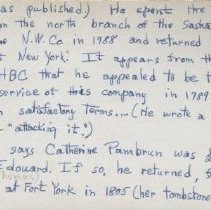 as published.) He spent the
on the north branch of the Saska
N.W. Co. in 1788 and returned
New York. It appears from th
HBC that he appealed to be t
service of this company in 1789
satisfactory terms...(He wrote a
"attacking it.")
says Catherine Pambrun was
Edouard. If so, he returned,
at Fort York in 1805 (her tombstone